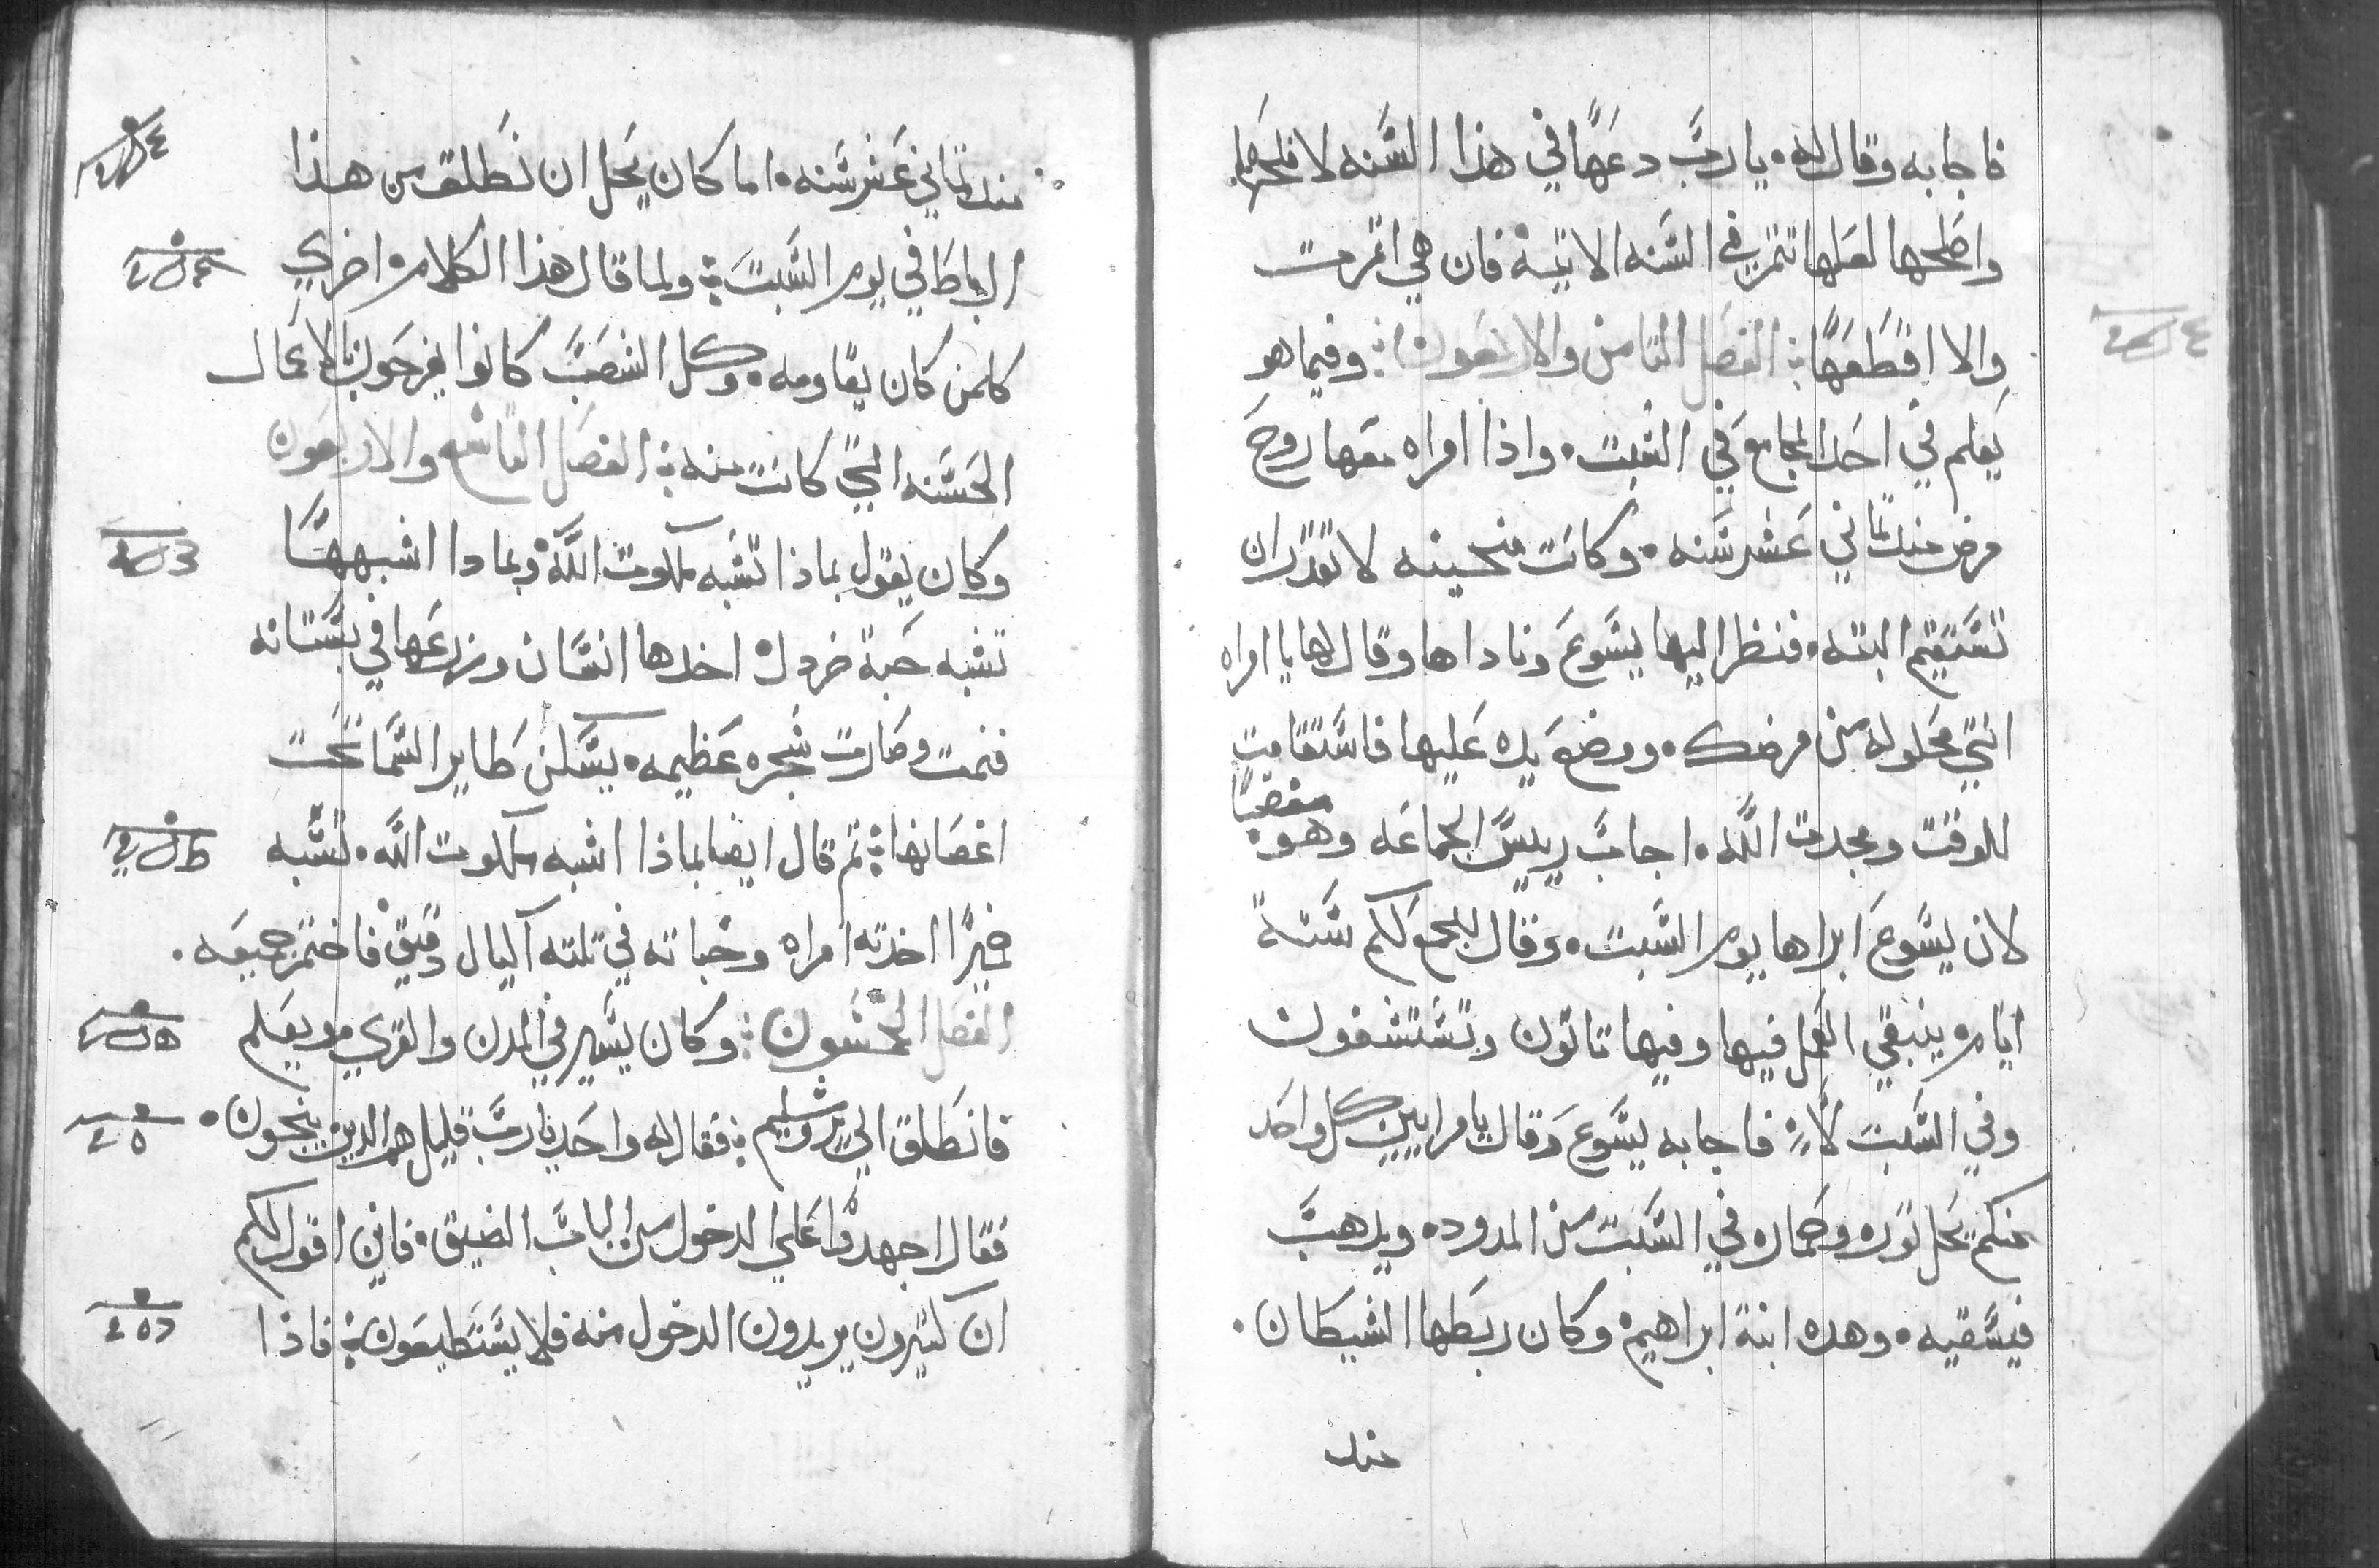 فاجابه وقال له. يا رب دعها في هذا السنه لافلحها
واصلحها لعلها تتمر في السنه الاتية فان هي اتمرت
والا اقطعها الفصل التامن والاربعون وفيما هو
يعلم في احد المجامع في السبت. واذا امراه معها روح
مرض مند تماني عشر سنه. وكانت منحنيه لا تقدر ان
تستقيم البته. فنظر اليها يسوع وناداها وقال لها يا امراه
انتي محلوله من مرضك. ووضع يده عليها فاستقامت
للوقت ومجدت الله. اجاب رييس الجماعه وهو مغضبا
لان يسوع ابراها يوم السبت. وقال للجمع لكم ستة
ايام ينبغي العمل فيها وفيها تاتون وتستشفون
وفي السبت لا. فاجابه يسوع وقال يا مراييين كل واحد
منكم يحل توره وحماره في السبت من المدود. ويدهب
فيسقيه. وهده ابنة ابراهيم وكان ربطها الشيطان.
مند
مند تماني عشر سنه. اما كان يحل ان تطلق من هذا
الرباط في يوم السبت ولما قال هذا الكلام اخزي
كلمن كان يقاومه. وكل الشعب كانوا يفرحون بالاعمال
الحسنه التي كانت منه الفصل التاسع والاربعون
وكان يقول بماذا تشبه ملكوت الله وبمادا اشبهها
تشبه حبة خردل اخدها انسان وزرعها في بستانه
فنمت وصارت شجره عظيمه. يسكن طاير السما تحت
اغصانها تم قال ايضا بماذا اشبه ملكوت الله. تشبه
خميرا اخدته امراه وخباته في تلتة اكيال دقيق فاختمر جميعه.
الفصل الخمسون وكان يسير في المدن والقري ويعلم
فانطلق الي يروشليم فقال له واحد يا رب قليل هم الدين ينجون.
فقال اجهدوا علي الدخول من الباب الضيق. فاني اقول لكم
ان كتيرون يريدون الدخول منه فلا يستطيعون فاذا